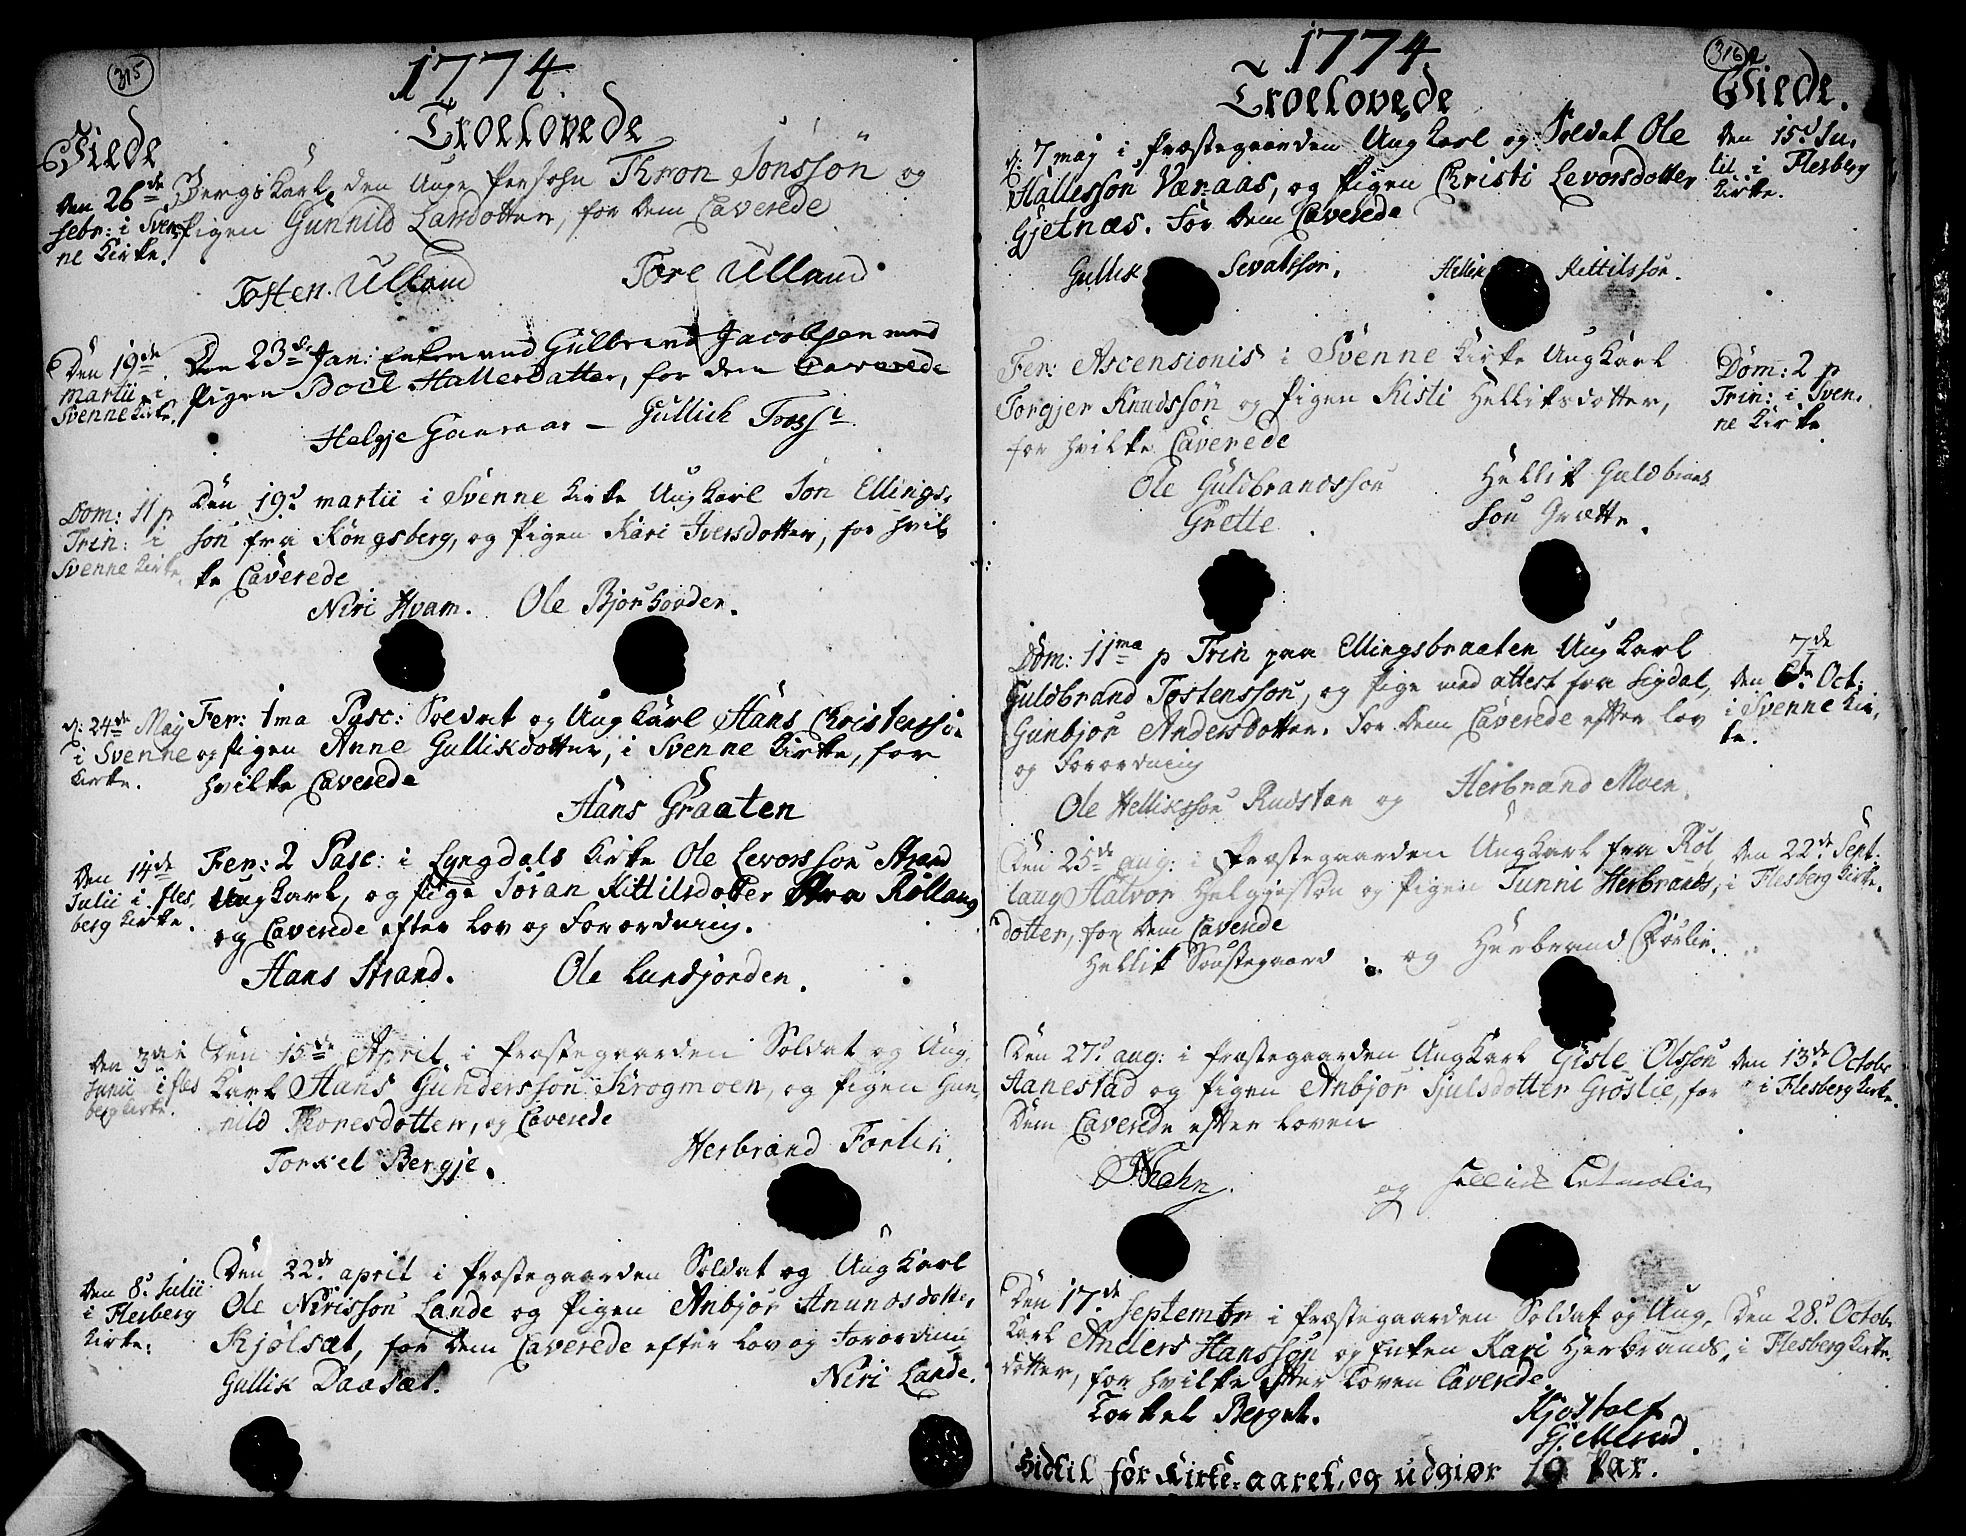 315
1774.
Troelovede
Viede
Den 26de
febr: i Sven
ne Kirke.
Bergs Karl, den Unge Persohn Thron Jonssön og
Pigen Gunnild Larsdotter, for dem Caverede
Tosten Ulland Tore Ulland
Den 19de
martii i
Svenne Kirke.
Den 23de Jan: Enkemand Gulbrand Jacobsen med
Pigen Boel Hallesdatter, for dem Caverede
Helgje Gaarnaas - Gullich Foss
Dom: 11 p
Trin: i
Svenne Kirke.
Den 19d martii i Svenne Kirke Ung Karl Jon Ellings-
son fra Kongsberg, og Pigen Kari Iversdotter, for hvil
ke Caverede
Niri Hvam. Ole Bjørhovder.
d: 24de Maj
i Svenne
Kirke.
Fer: 1ma Pasc: Soldat og Ung Karl Hans Christenssön
og Pigen Anne Gullikdotter, i Svenne Kirke, for
hvilke Caverede
Hans Graaten
Den 14de
Julii i Fles,
berg Kirke.
Fer: 2 Pasc: i Lyngdals Kirke Ole Levorssön Strand
Ung Karl, og Pige Jöran Kittilsdotter Rollaug
og Caverede efter Lov og Forordning.
Hans Strand. Ole Lundjorden.
Den 3die
Junii i Fles
berg Kirke.
Den 15de April i Præstegaarden Soldat og Ung,
Karl Hans Gunderssön Krogmoen, og Pigen Gun,
nild Thoresdotter, og Caverede
Torkel Bergje. Herbrand Forlin
Den 8d Julii
i Flesberg
Kirke.
Den 22de april i Præstegaarden Soldat og Ung Karl
Ole Nirissön Lande og Pigen Anbjør Anundsdotter
Kjølsæt, for dem Caverede efter Lov og Forordning
Gullik Daasæt. Niri Lande.
316
1774
Troelovede
Viede.
d: 7 maj i Præstegaarden Ung Karl og Soldat Ole
Hallesson Væraas, og Pigen Christi Levorsdotter
Gjetnæs. For dem Caverede
Gullik Sevatsson. Hellik Kittilsson.
Den 15d Ju,
lii i Flesberg
Kirke.
Fer: Ascensionis i Svenne Kirke Ung Karl
Torgjer Knudssön og Pigen Kisti Helliksdotter,
for hvilke Caverede
Ole Guldbrandsson Hellik Guldbrands
Grette. son Grætte.
Dom: 2 p
Trin: i Sven,
ne Kirke
Dom: 11ma p Trin paa Ellingsbraaten Ung Karl
Guldbrand Tostenssön, og Pige med attest fra Sigdal,
Gunbjør Andersdotter. For dem Caverede efter Lov
og Forordning
Ole Helliksson Rudstan og Herbrand Moen.
7de
Oct:
i Svenne Kir,
ke.
Den 25de aug: i Præstegaarden Ung Karl fra Rol,
laug Halvor Helgjessön og Pigen Tunni Herbrands,
dotter, for dem Caverede
Hellik Soustegaard og Herbrand
Den 22de Sept.
i Flesberg Kirke.
Den 27d aug: i Præstegaarden Ung Karl Gisle Olsson
Aanestad og Pigen Anbjør Sjulsdotter Groslie, for
dem Caverede efter Loven
og
Den 13de Octobr
i Flesberg Kirke.
Den 17de September i Præstegaarden Soldat og Ung,
Karl Anders Hanssön og Enken Kari Herbrands,
dotter, for hvilke efter Loven Caverede
Torkel Berget. Kjøstolf
Gjellerud.
Den 28d Octobr
i Flesberg Kirke.
Hidtil før Kirke-aaret, og udgjør 19 Par.